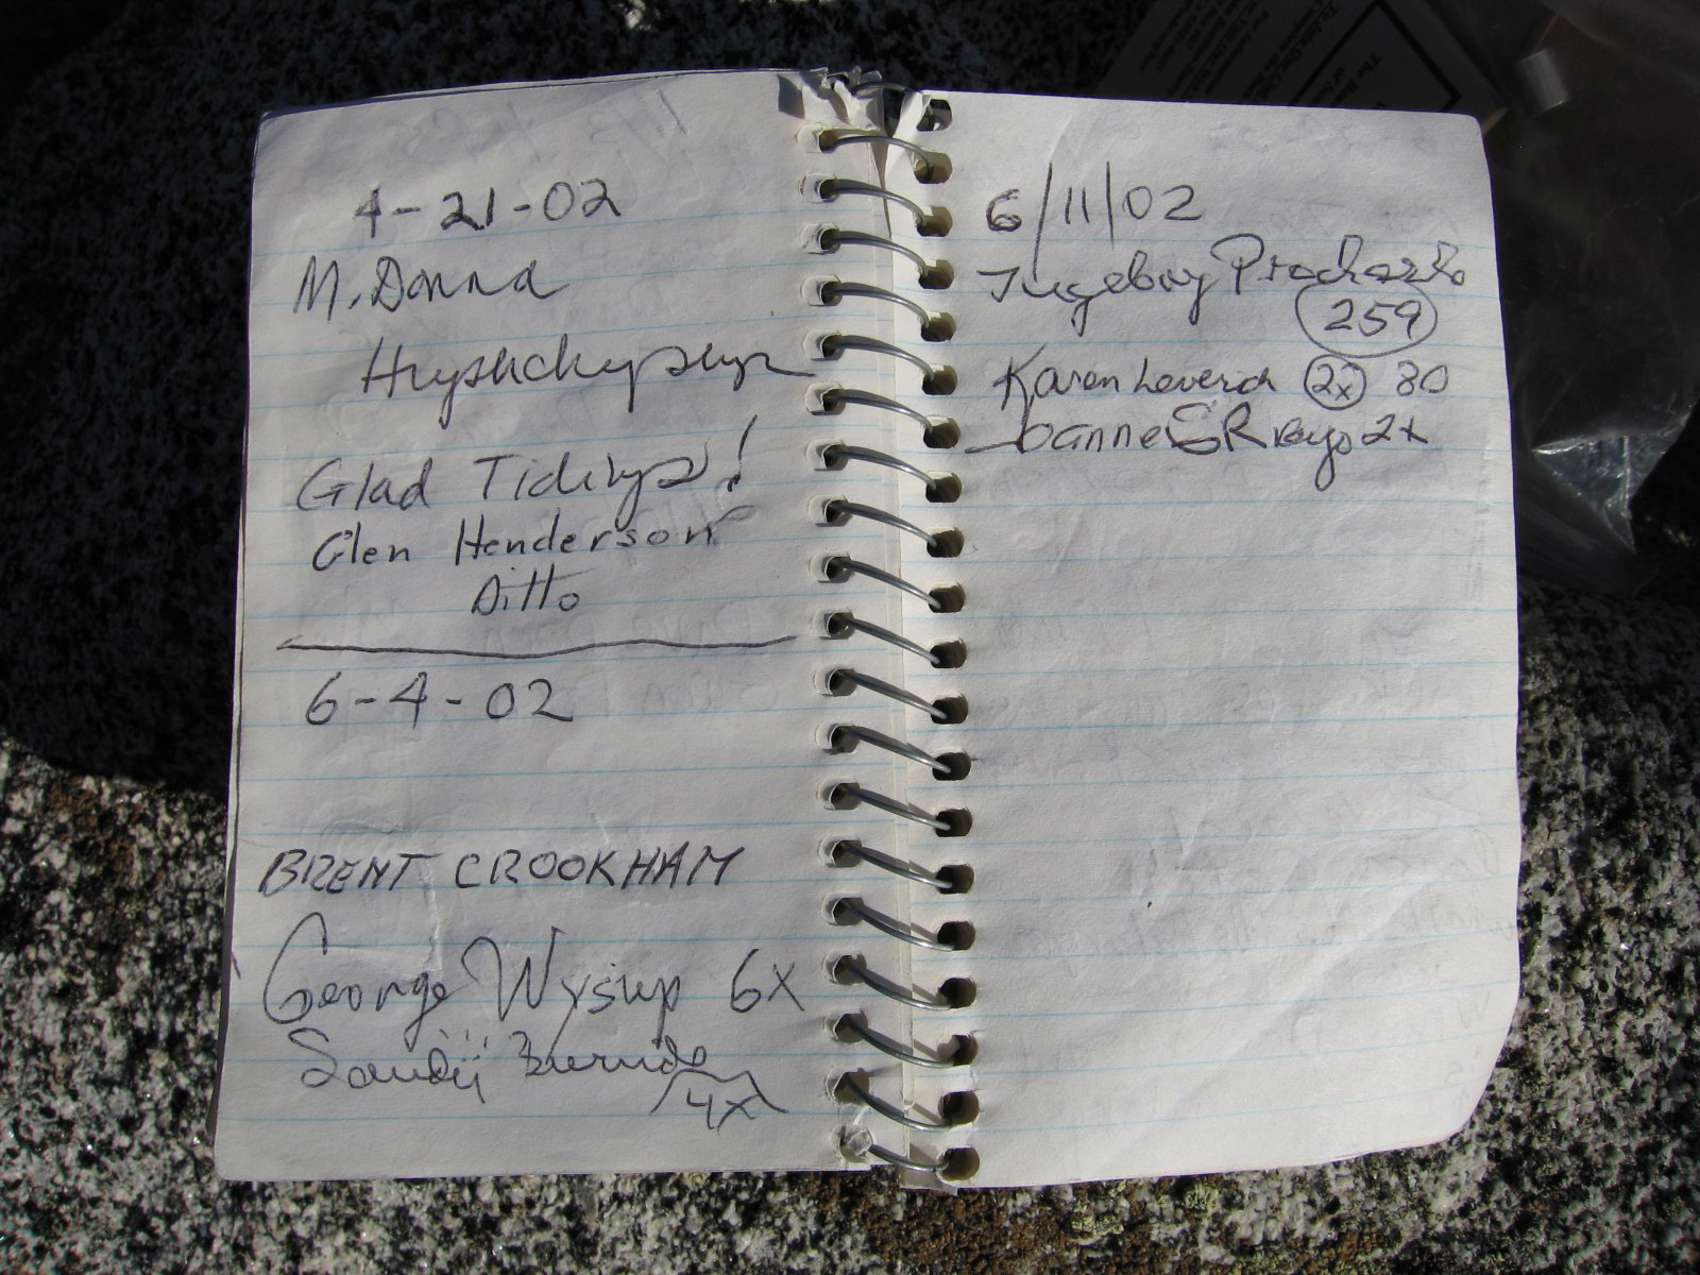 4-21-02
M. Donna
Glad Tidings!
Glen Henderson
Ditto
6-4-02
BRENT CROOKHAM
George Wysup 6x
Sandii
4x
6/11/02
Ingeborg Prochazka
259
Karen Leverich 2x 80
Joanne
2x